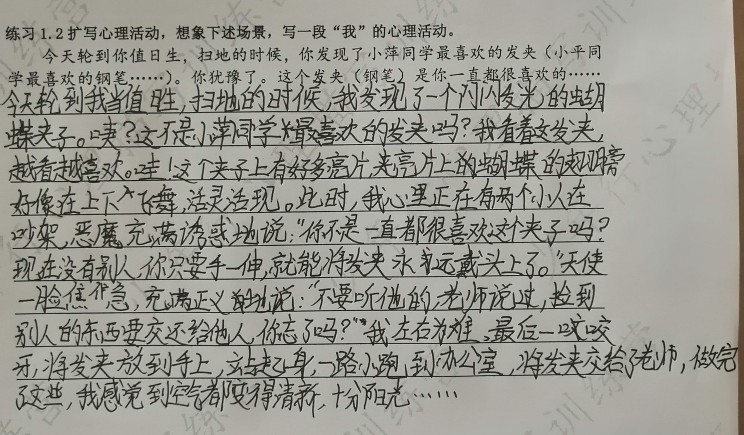 练习1.2 扩写心理活动，想象下述场景，写一段“我”的心理活动。
今天轮到你值日生，扫地的时候，你发现了小萍同学最喜欢的发夹（小平同
学最喜欢的钢笔……）。你犹豫了。这个发夹（钢笔）是你一直都很喜欢的……
今天轮到我当值日生，扫地的时候，我发现了一个闪闪发光的蝴
蝶夹子。咦？这不是小萍同学最喜欢的发夹吗？我看着这发夹，
越看越喜欢。哇！这个夹子上有好多亮片，亮片上的蝴蝶的翅膀
好像在上下飞舞，活灵活现。此时，我心里正在有两个小人在
吵架，恶魔充满诱惑地说：“你不是一直都很喜欢这个夹子吗？
现在没有别人，你只要手一伸，就能将发夹永远戴头上了。”天使
一脸焦急，充满正义地说：“不要听他的，老师说过，捡到
别人的东西要交还给他人，你忘了吗？”我左右为难，最后一咬咬
牙，将发夹放到手上，站起身，一路小跑到办公室，将发夹交给了老师，做完
了这些，我感觉到空气都变得清新，十分阳光……